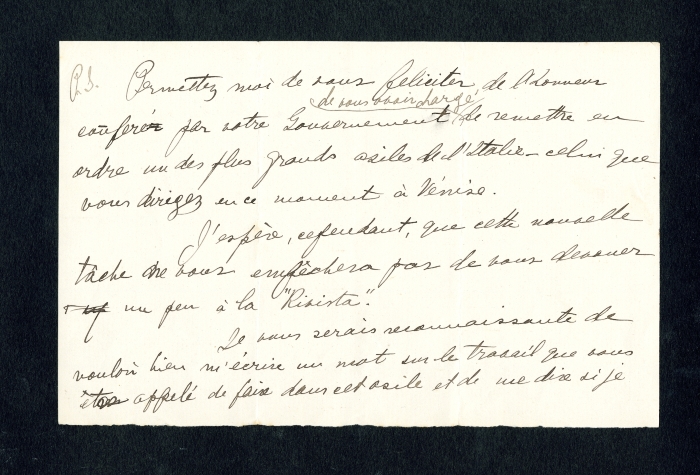 P.S. Permettez moi de vous feliciter de l'honneur
de vous avoir chargé
conféré par votre Gouvernement de remettre en
ordre un des plus grands asiles de l'Italie – celui que
vous dirigez en ce moment à Vénise.
J'espère, cependant, que cette nouvelle
tâche ne vous empêchera pas de vous devouer
un peu à la "Rivista".
Je vous serais reconnaissante de
vouloir bien m'écrire un mot sur le travail que vous
êtes appelé de faire dans cet asile et de me dire si je